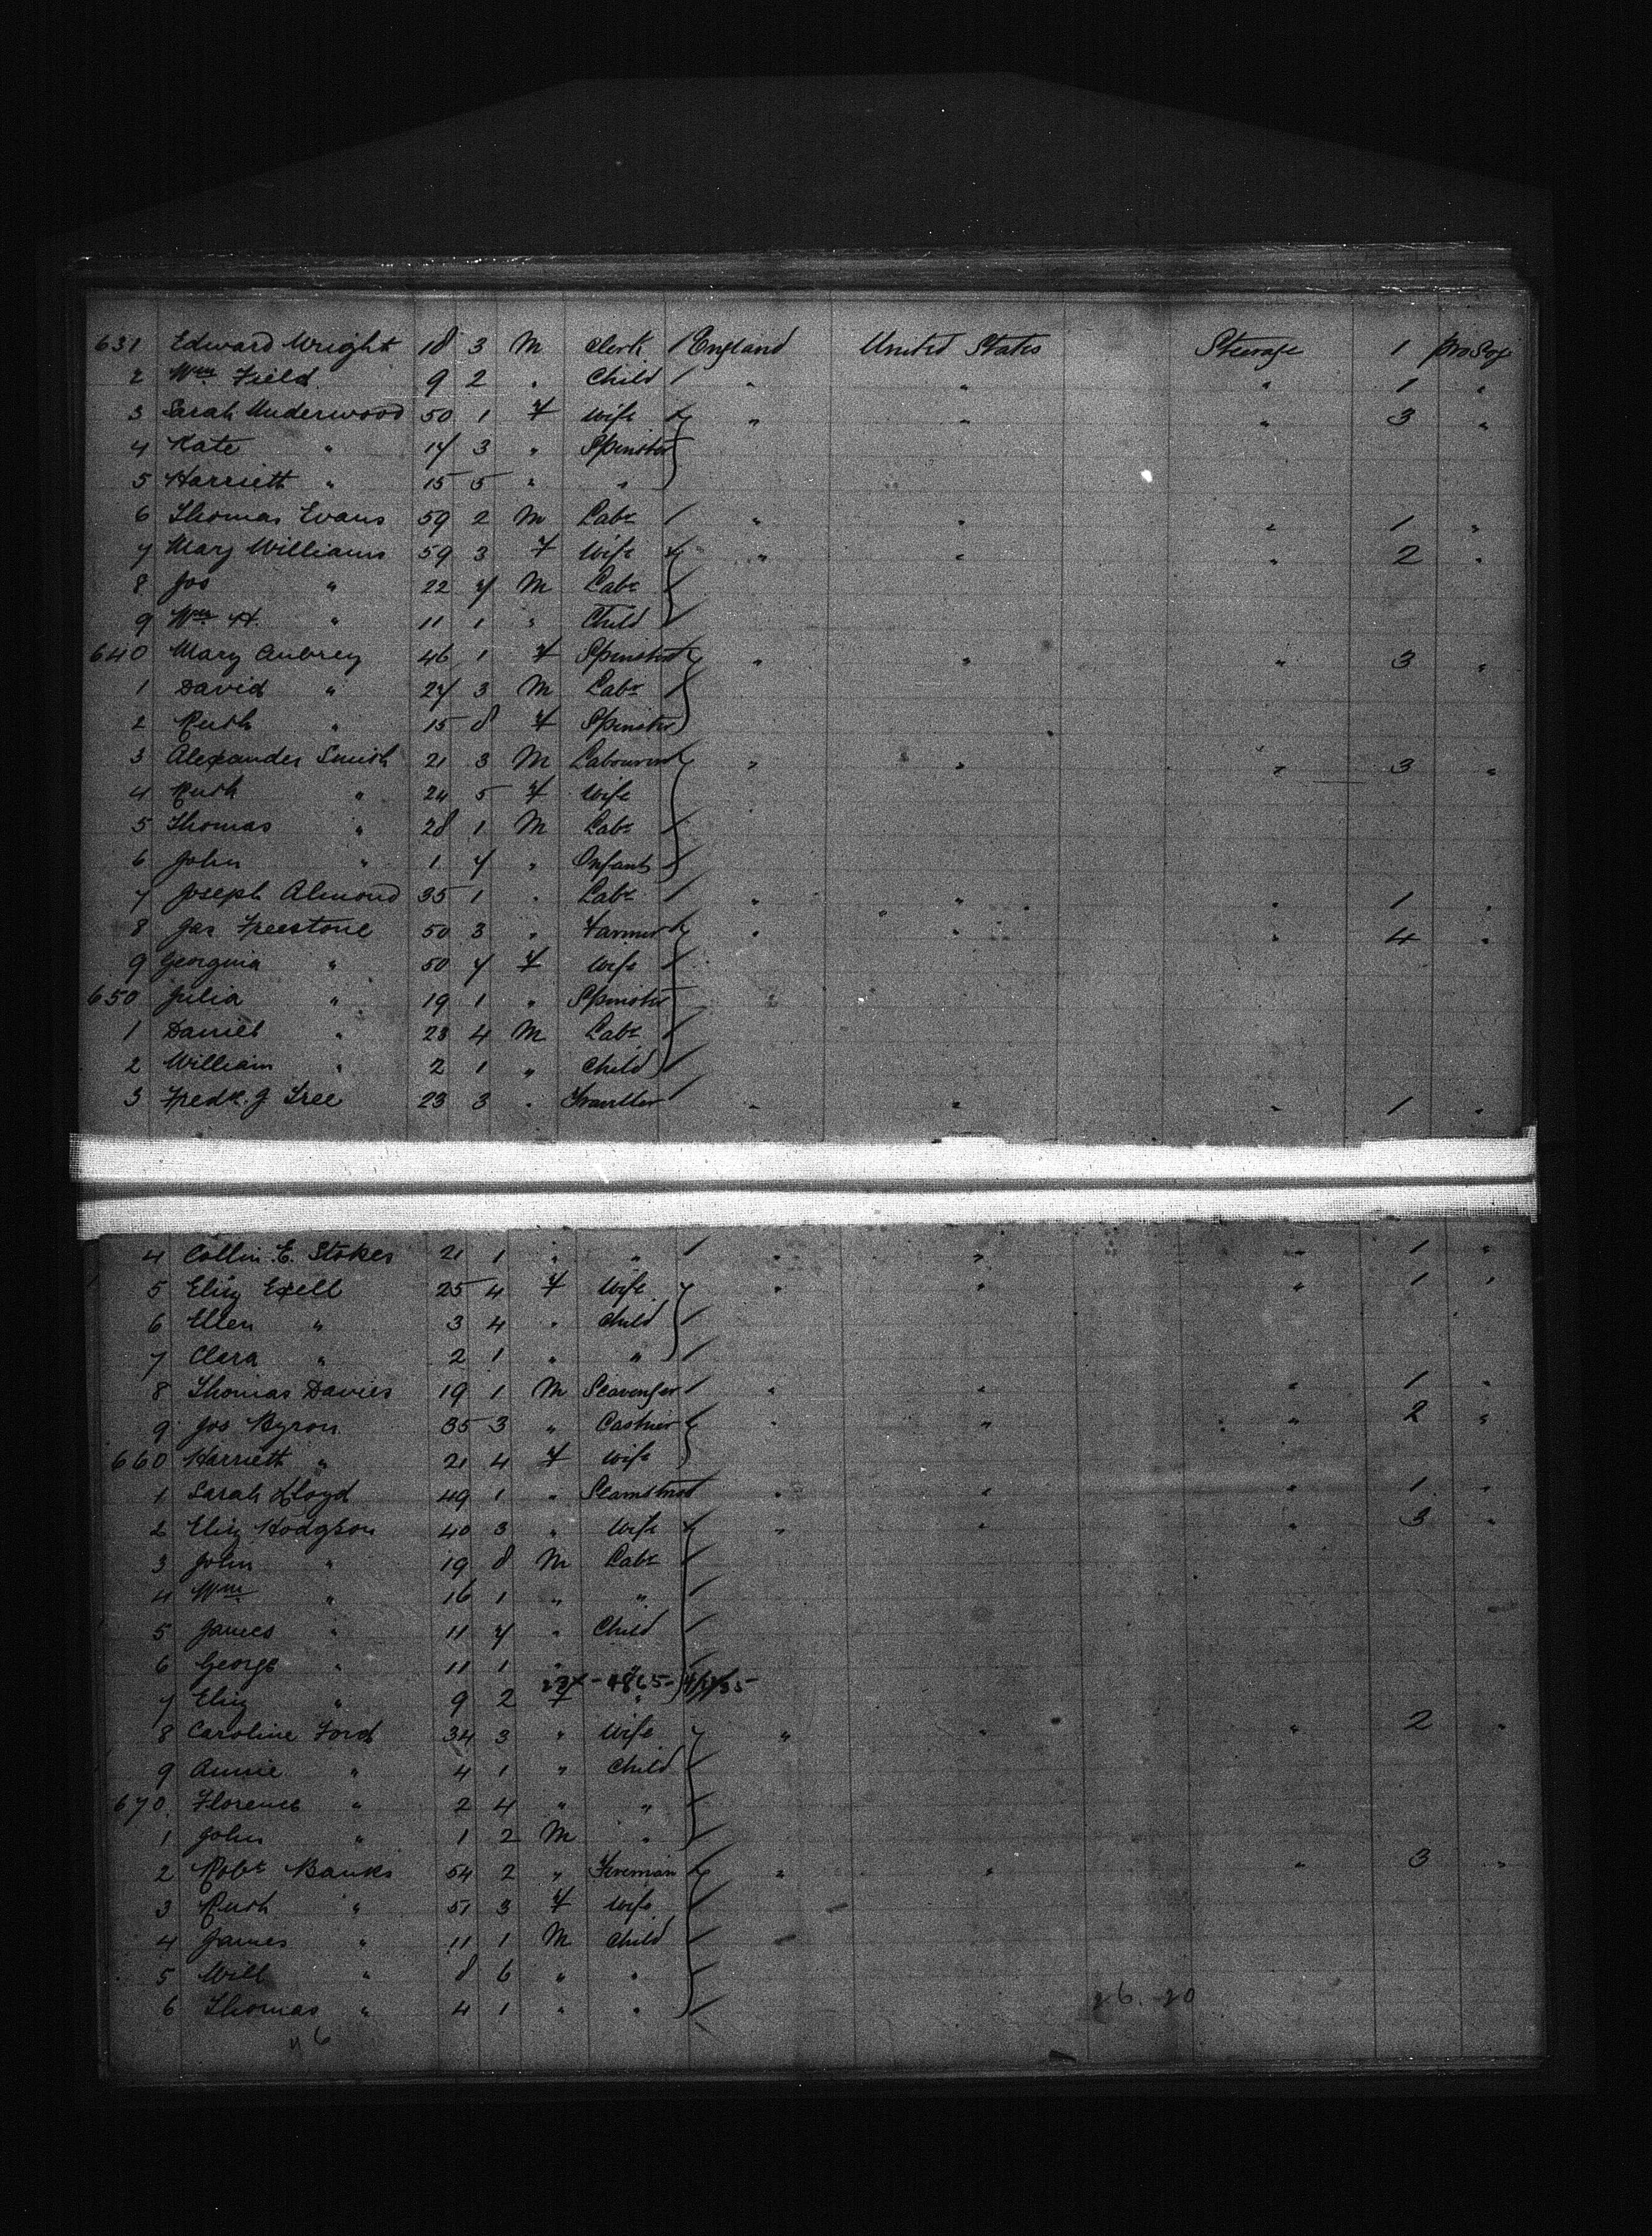 631 Edward Wright 18 3 M Clerk / England United States Steerage 1 pro Soj
2 Wm Field 9 2 " Child / " " " 1 "
3 Sarah Underwood 50 1 F Wife " " " 3 "
4 Kate " 14 3 " Spinster
5 Harriett " 15 5 " "
6 Thomas Evans 59 2 M Labr / " " " 1 "
7 Mary Williams 59 3 F Wife " " " 2 "
8 Jos " 22 7 M Labr /
9 Wm H. " 11 1 " Child /
640 Mary Aubrey 46 1 F Spinster " " " 3 "
1 David " 24 3 M Labr /
2 Ruth " 15 8 F Spinster
3 Alexander Smith 21 3 M Labourer " " " 3 "
4 Ruth " 24 5 F Wife
5 Thomas " 28 1 M Labr /
6 John " 1 7 " Infant /
7 Joseph Almond 35 1 " Labr / " " " 1 "
8 Jas Freestone 50 3 " Farmer " " " 4 "
9 Georgina " 50 7 F Wife /
650 Julia " 19 1 " Spinster
1 Daniel " 23 4 M Labr /
2 William " 2 1 " Child /
3 Fredk. J Tree 23 3 " Traveller / " " " 1 "
4 Collin E. Stokes 21 1 " " / " " " 1 "
5 Eliz Exell 25 4 F Wife " " " 1 "
6 Ellen " 3 4 " Child /
7 Clara " 2 1 " " /
8 Thomas Davies 19 1 M Scavenger / " " " 1 "
9 Jos Byron 35 3 " Cashier " " " 2 "
660 Harriett " 21 4 F Wife
1 Sarah Lloyd 49 1 " Seamstress " " " 1 "
2 Eliz Hodgson 40 3 " Wife " " " 3 "
3 John " 19 8 M Labr /
4 Wm " 16 1 " " /
5 James " 11 7 " Child /
6 George " 11 1 " " /
7 Eliz " 9 2 F "
8 Caroline Ford 34 3 " Wife " " " 2 "
9 Annie " 4 1 " Child /
670 Florence " 2 4 " " /
1 John " 1 2 M " /
2 Robt Banks 54 2 " Fireman " " " 3 "
3 Ruth " 51 3 F Wife /
4 James " 11 1 M Child /
5 Will " 8 6 " " /
6 Thomas " 4 1 " " /